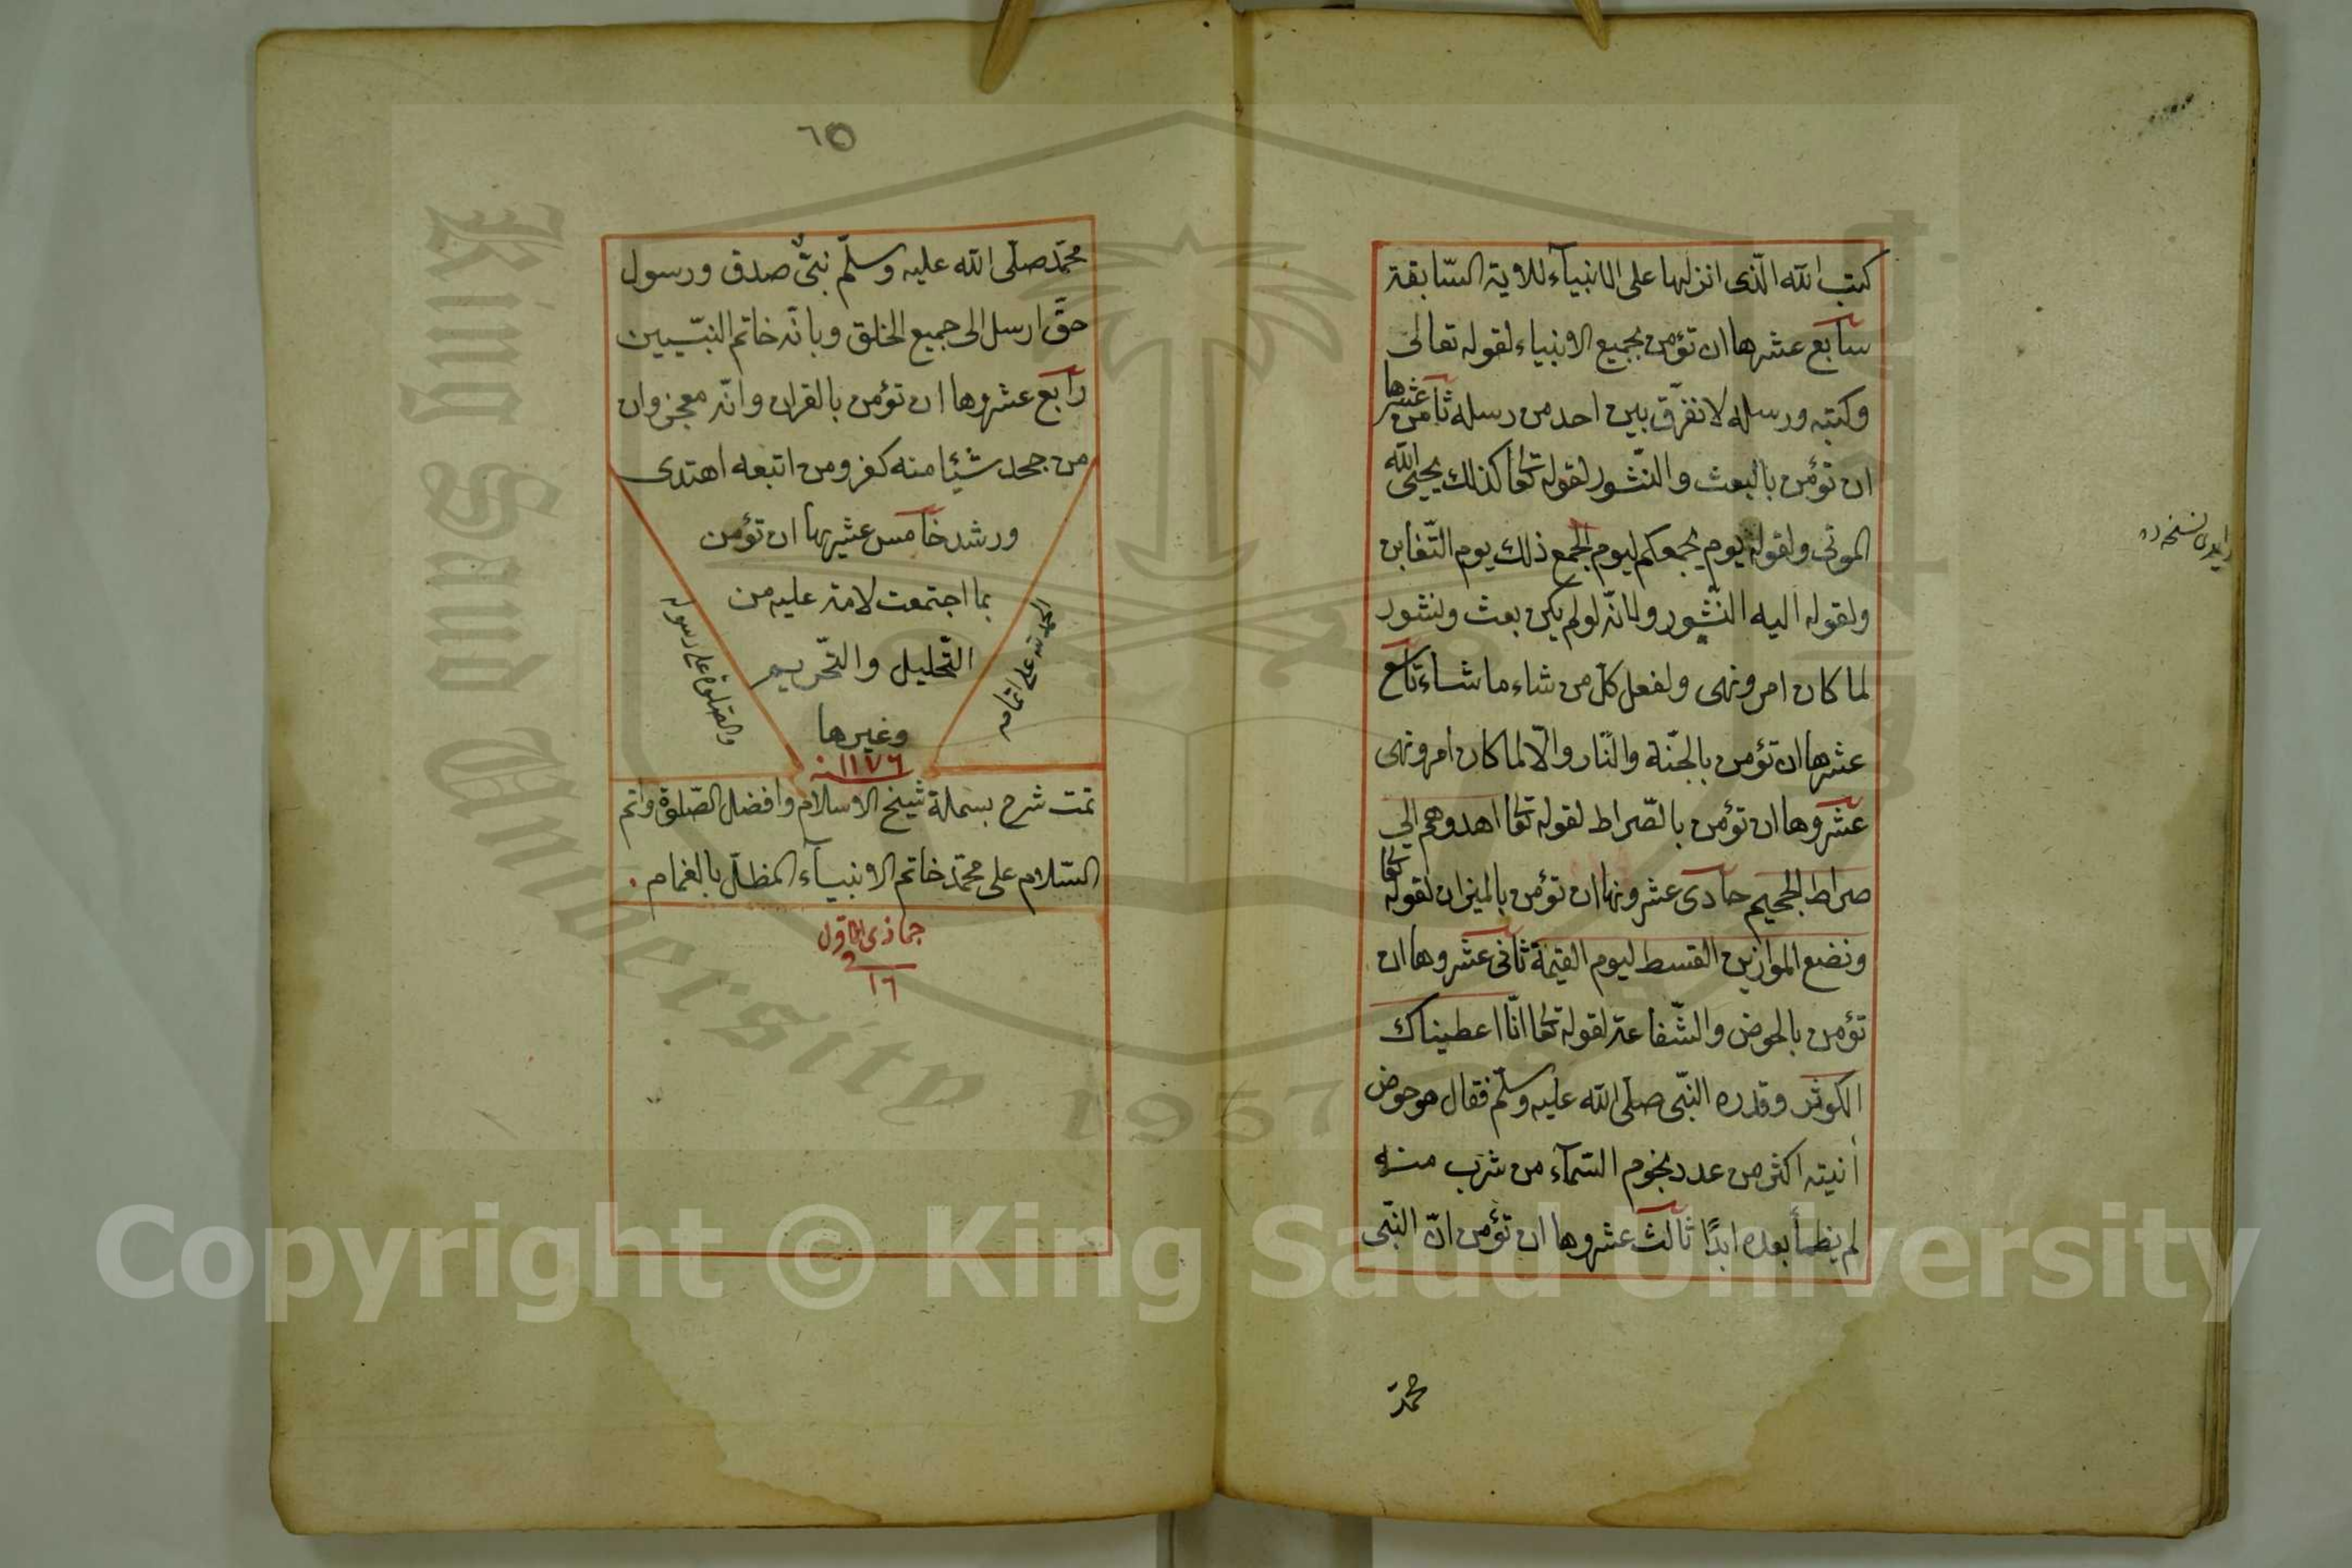 كتب الله الذى انزلها على الانبيآء للاية السّابقة
سابع عشرها ان تؤمن بجميع الانبياء لقوله تعالى
وكتبه ورسله لا نفرّق بين احد من رسله ثامن عشرها
ان تؤمن بالبعث والنّشور لقوله تعا كذلك يحيى الله
الموتى ولقوله يوم يجمعكم ليوم الجمع ذلك يوم التّغابن
ولقوله اليه النّشور ولانّه لولم يكن بعث ونشور
لما كان امر ونهى ولفعل كل من شاء ما شاء تاسع
عشرها ان تؤمن بالجنّة والنّار والّا لما كان امر ونهى
عشروها ان تؤمن بالصّراط لقوله تعا اهدوهم الى
صراط الجحيم حادى عشرونها ان تؤمن بالميزان لقوله تعا
ونضع الموازين القسط ليوم القيمة ثانى عشروها ان
تؤمن بالحوض والشّفاعة لقوله تعا انّا اعطيناك
الكوثر وقدره النّبى صلّى الله عليه وسلّم فقال هو حوض
أنيته اكثر من عدد نجوم السّمآء من شرب منه
لم يظمأ بعده ابدًا ثالث عشروها ان تؤمن انّ النّبى
محمّد
٦٥
محمّد صلّى الله عليه وسلّم نبىّ صدق ورسول
حقّ ارسل الى جميع الخلق وبانّه خاتم النبّيين
رابع عشروها ان تؤمن بالقران وانّه معجز وان
من جحد شيئا منه كفر ومن اتبعه اهتدى
ورشد خامس عشريها ان تؤمن
بما اجتمعت لامة عليه من
التّحليل والتّحريم
وغيرها
الحمد لله على اتمامه
والصّلوة على رسوله
١١٧٦
تمت شرح بسملة شيخ الاسلام وافضل الصّلوة واتم
السّلام على محمّد خاتم الانبيآء المظلّل بالغمام
جماذى الاول
١٦
King Saud University
1957
Copyright © King Saud University